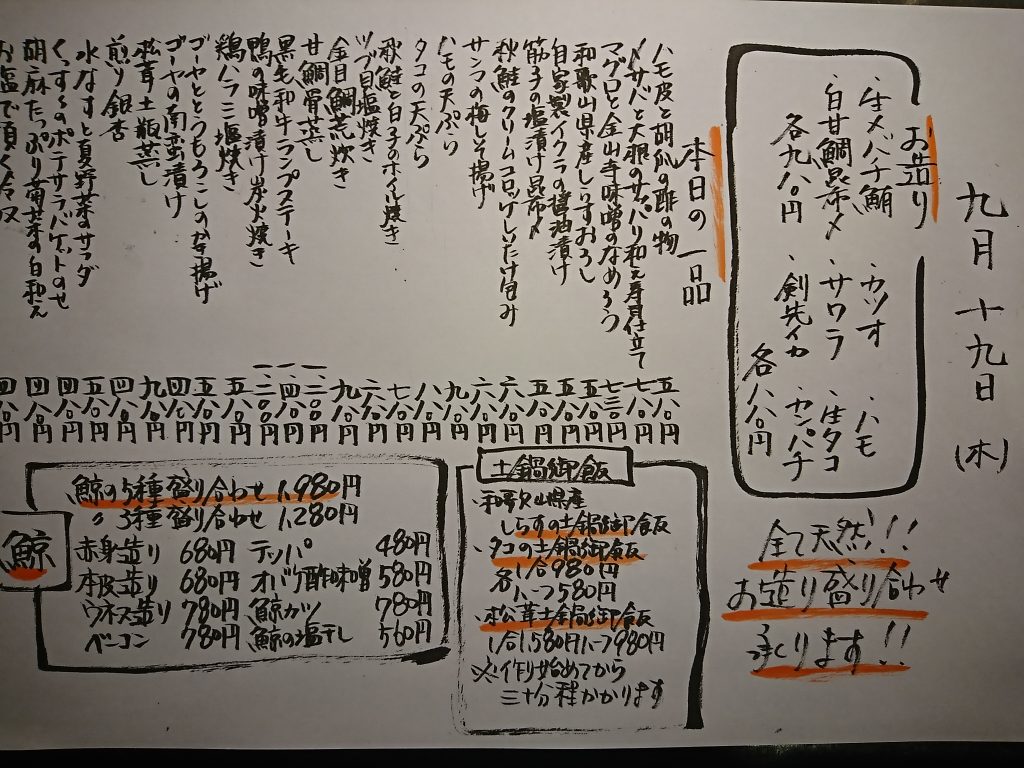 九月十九日(木)
お造り
・生メバチ鮪 ・カツオ ・ハモ
・白甘鯛昆布〆 ・サワラ ・生タコ
各九八〇円 ・剣先イカ ・カンパチ
各八八〇円
全て天然!!
お造り盛り合わせ
承ります!!
本日の一品
ハモ皮と胡瓜の酢の物 五八〇円
〆サバと大根のサッパリ和え寿司仕立て 七八〇円
マグロと金山寺味噌のなめろう 七三〇円
和歌山県産しらすおろし 五八〇円
自家製イクラの醤油漬け 五八〇円
筋子の塩漬け昆布〆 五八〇円
秋鮭のクリームコロッケしいたけ包み 六八〇円
サンマの梅しそ揚げ 六八〇円
ハモの天ぷら 九八〇円
タコの天ぷら 八八〇円
秋鮭と白子のホイル焼き 七八〇円
ツブ貝塩焼き 六八〇円
金目鯛荒炊き 九八〇円
甘鯛骨蒸し 一二八〇円
黒毛和牛ランプステーキ 一四八〇円
鴨の味噌漬け炭火焼き 一二〇〇円
鶏ハラミ塩焼き 五八〇円
ゴーヤととうもろこしのかき揚げ 五八〇円
ゴーヤの南蛮漬け 四八〇円
松茸土瓶蒸し 九八〇円
煎り銀杏 四八〇円
水なすと夏野菜のサラダ 五八〇円
くんすものポテサラバゲットのせ 四八〇円
胡麻たっぷり菊菜の白和え 四八〇円
お塩で頂く冷奴 四八〇円
土鍋御飯
・和歌山県産
しらすの土鍋御飯
・タコの土鍋御飯
各1合980円
ハーフ580円
・松茸土鍋御飯
1合1,580円ハーフ980円
※作り始めてから
三十分程かかります
鯨
鯨の5種盛り合わせ 1,980円
〃 3種盛り合わせ 1,280円
赤身造り 680円 テッパ 480円
本皮造り 680円 オバケ酢味噌 580円
ウネス造り 780円 鯨カツ 780円
ベーコン 780円 鯨の塩干し 560円